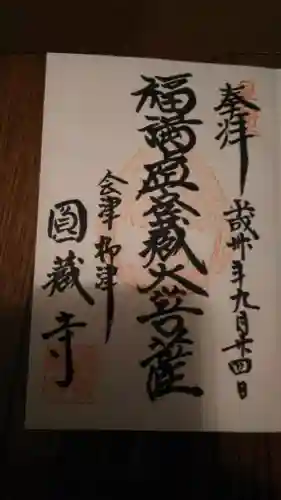 奉拝
平成卅年九月廿四日
福満虚空蔵大菩薩
会津柳津
圓藏寺